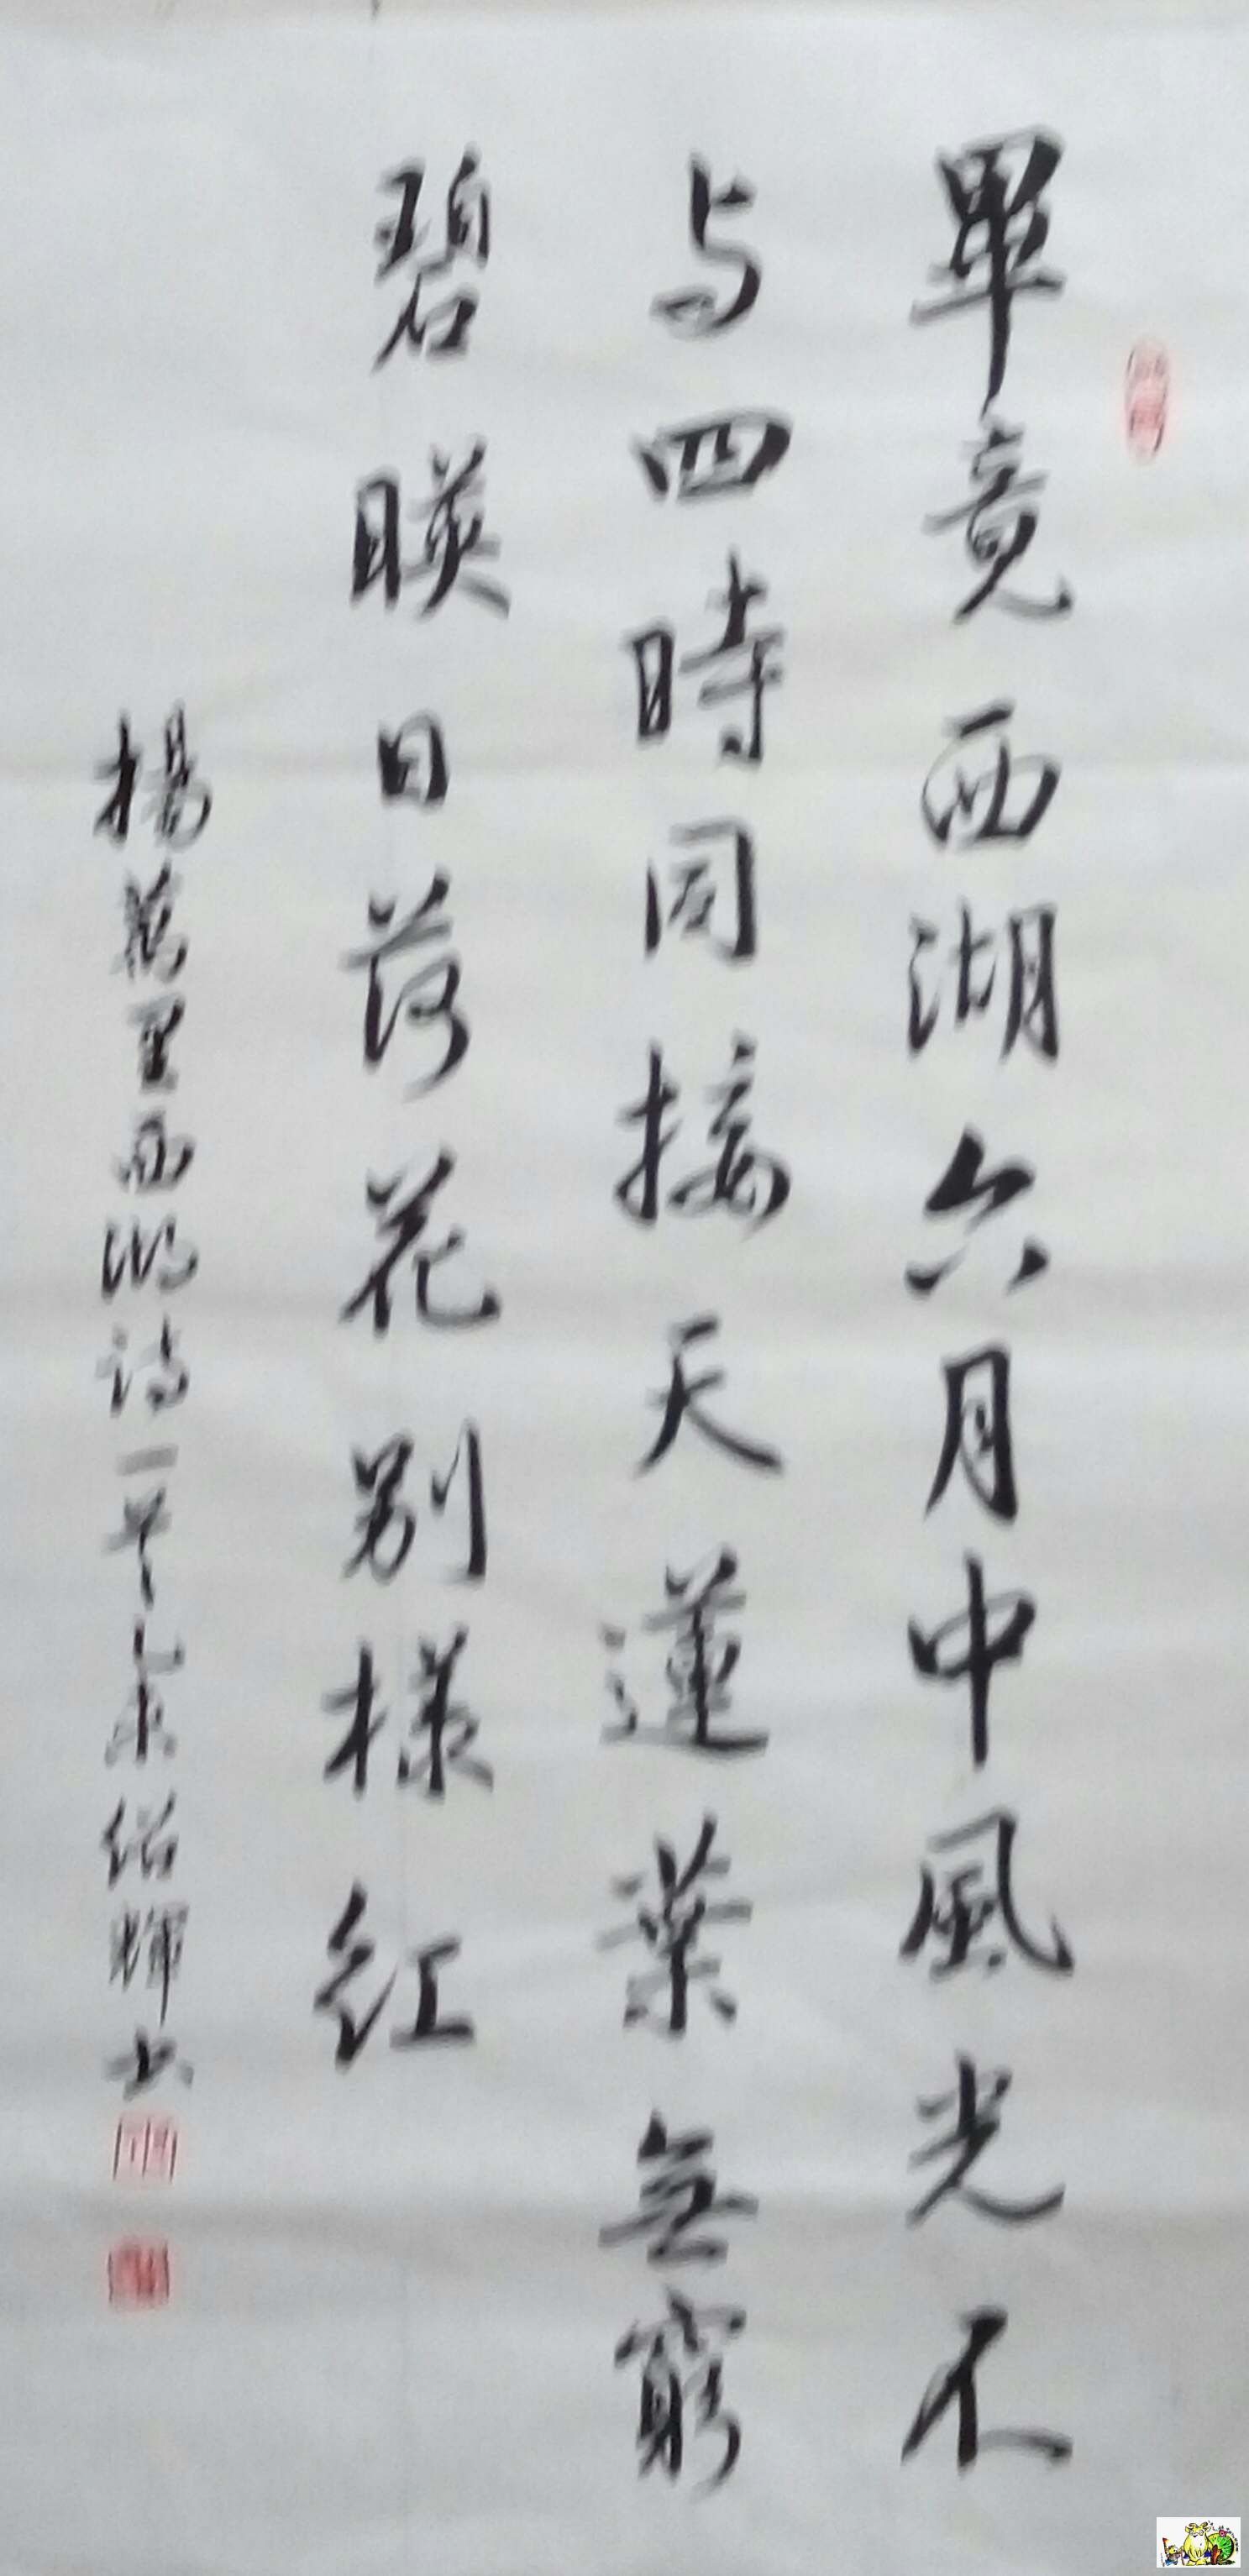 畢竟西湖六月中風光不
与四時同接天蓮葉無窮
碧暎日落花别樣红
楊萬里西湖詩一首 绍輝书